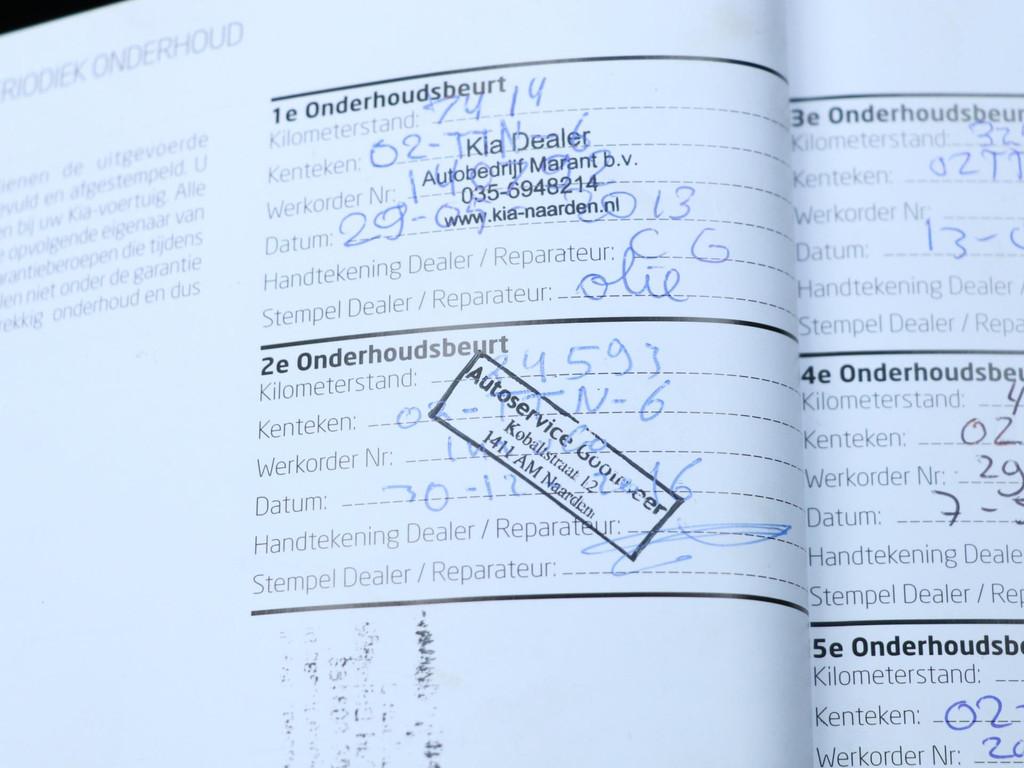 RIODIEK ONDERHOUD
ienen de uitgevoerde
evuld en afgestempeld. U
n bij uw Kia-voertuig. Alle
opvolgende eigenaar van
rantieberoepen die tijdens
len niet onder de garantie
rekkig onderhoud en dus
1e Onderhoudsbeurt
Kilometerstand: 7414
Kenteken: 02-TTN-6
Kia Dealer
Autobedrijf Marant b.v.
035-6948214
www.kia-naarden.nl
Werkorder Nr:
Datum: 29-05-2013
Handtekening Dealer / Reparateur: CG
Stempel Dealer / Reparateur: olie
2e Onderhoudsbeurt
Kilometerstand: 24593
Kenteken: 02-TTN-6
Werkorder Nr:
Datum: 30-12-2016
Autoservice Gooimeer
Kobaltstraat 12
1411 AM Naarden
Handtekening Dealer / Reparateur:
Stempel Dealer / Reparateur:
3e Onderhoudsbeur
Kilometerstand: 32
Kenteken: 02TT
Werkorder Nr:
Datum: 13-0
Handtekening Dealer /
Stempel Dealer / Repa
4e Onderhoudsbeu
Kilometerstand: 4
Kenteken: 02
Werkorder Nr: 29
Datum: 7-
Handtekening Deale
Stempel Dealer / Rep
5e Onderhoudsb
Kilometerstand:
Kenteken: 02-
Werkorder Nr: 20